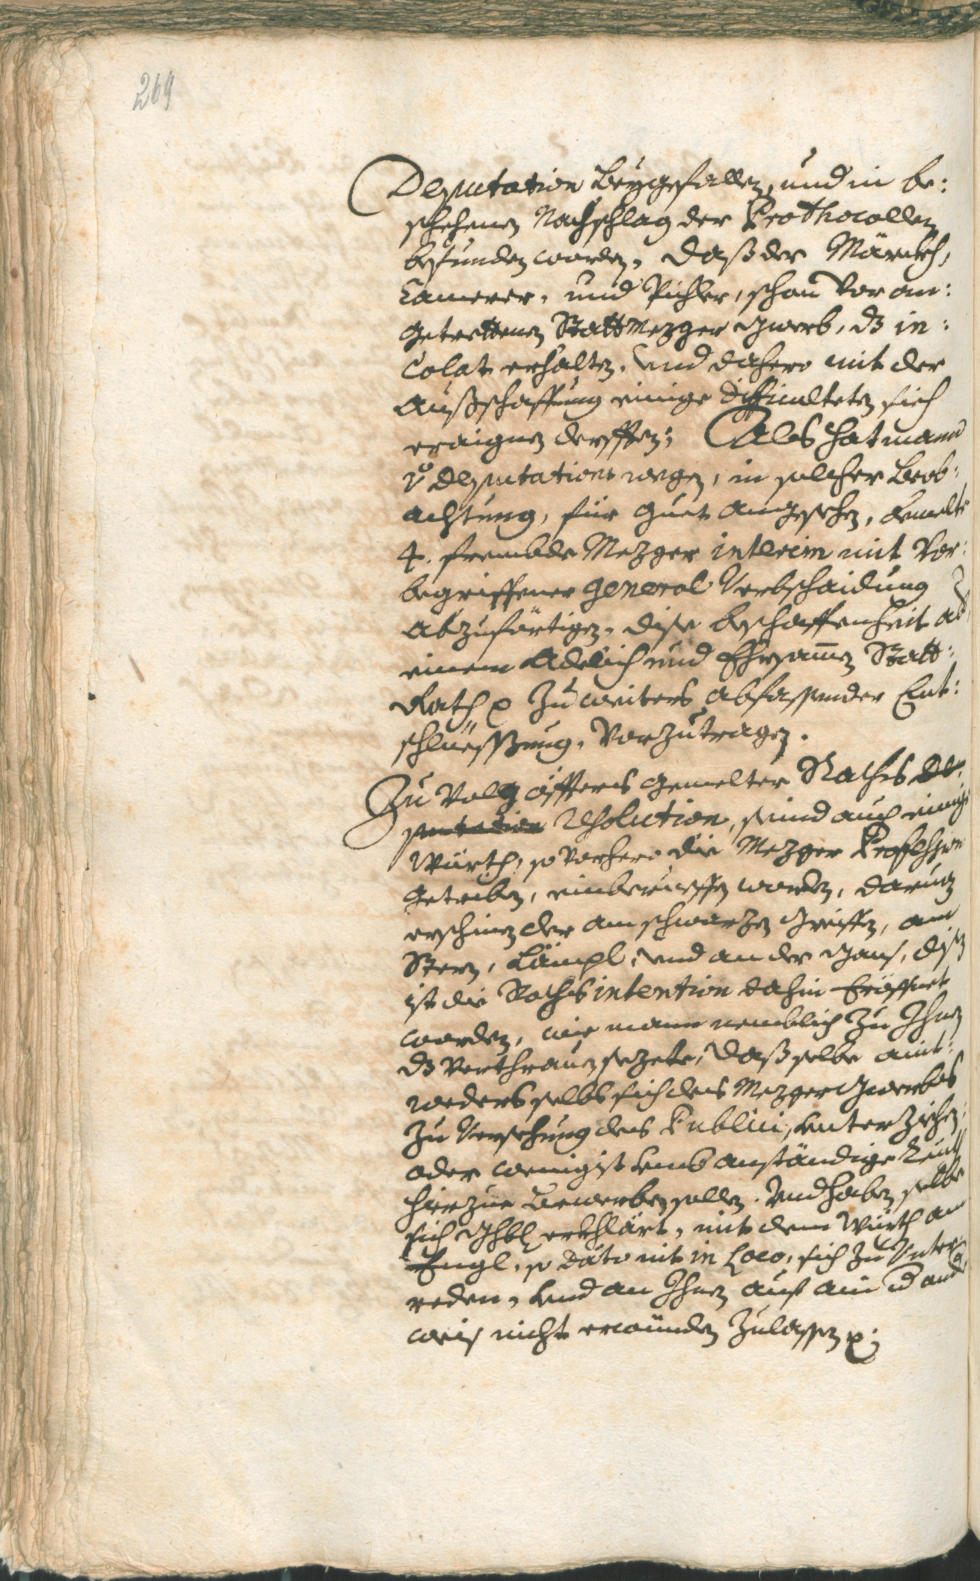 269
Deputation beygefallen, und in be:
schehenen Nachschlag der Prothocollen
befunden worden, daß der Märckh,
Camerer, und Pichler, schon vor an:
getrettenen Stattmezger Gwerb, dz in:
colat erhalten, und dahero mit der
Außschaffung einige difficulteten sich
eraignen derfften; Als hat mann
Deputations wegen, in solcher beob:
achtung, für guet angesehen, gemelte
4. frembde Mezger interim mit vor:
begriffener general Verbschaidung
abzuförtigen, dise beschaffenheit ab
einem Adelich und Ehrsamen Statt:
Rath zu weiters abfassender Ent:
schliessung, vorzutragen.
Zu Volg öffters gemelter Raths De:
putation resolution, seind auch einige
Würth, so vorhero die Mezger Profession
getriben, einberueffen worden, darunder
erschinen der am schwarzen Greiffen, am
Stern, Lämpl, und an der Gans, disen
ist die Raths intention dahin eröffnet
worden, wie mann nemblich zu Ihnen
dz Verthrauen sezete, daß selbe aint:
weders selbs sich des Mezger Gwerbes
zu Versehung des Publici, unterziehen,
oder wenigist umb anständige Leuth
hierzue bewerben sollen. Und haben selbe
sich erkhlärt, mit dem Würth am
Engl, so dato nit in Loco, sich zu unter:
reden, und an Ihnen auf ain und ander
weis nicht erwünden zulassen